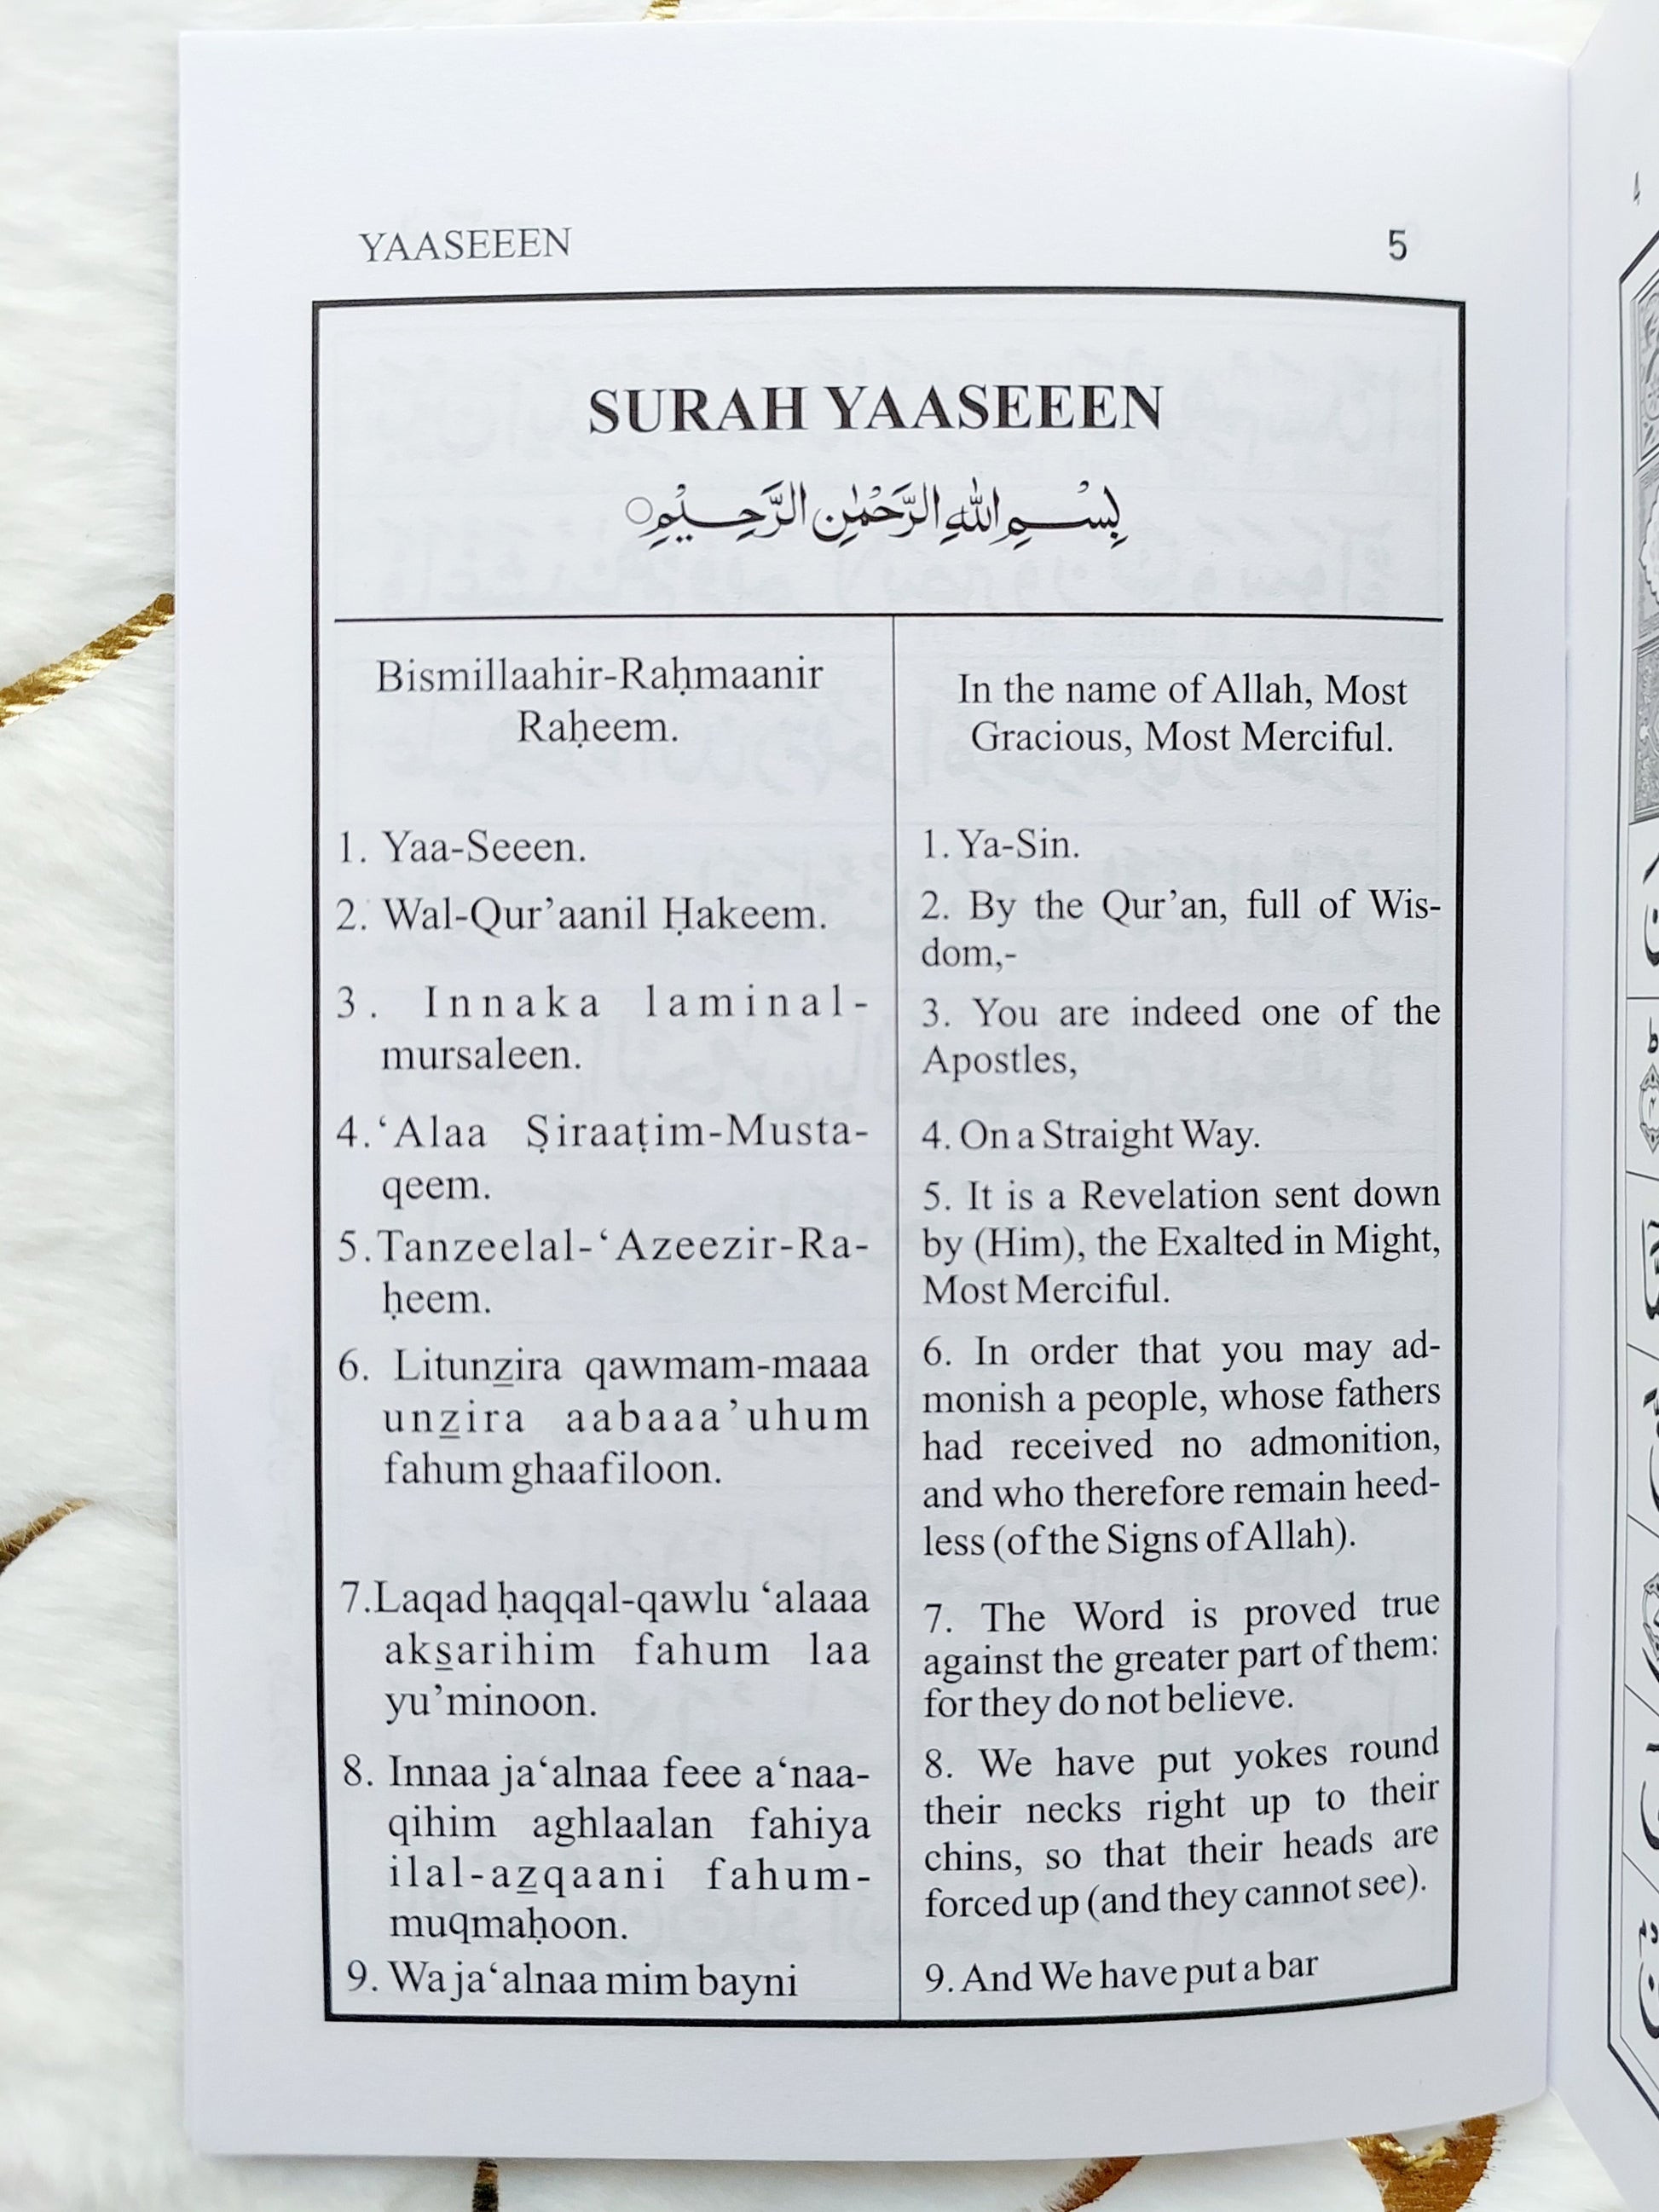 YAASEEEN 5
SURAH YAASEEEN
بِسْمِ اللّٰهِ الرَّحْمٰنِ الرَّحِيْمِ○
Bismillaahir-Raḥmaanir
Raḥeem.
1. Yaa-Seeen.
2. Wal-Qur’aanil Ḥakeem.
3. Innaka laminal-
mursaleen.
4.‘Alaa Ṣiraaṭim-Musta-
qeem.
5.Tanzeelal-‘Azeezir-Ra-
ḥeem.
6. Litunẕira qawmam-maaa
unẕira aabaaa’uhum
fahum ghaafiloon.
7.Laqad ḥaqqal-qawlu ‘alaaa
aks̱arihim fahum laa
yu’minoon.
8. Innaa ja‘alnaa feee a‘naa-
qihim aghlaalan fahiya
ilal-aẕqaani fahum-
muqmaḥoon.
9. Wa ja‘alnaa mim bayni
In the name of Allah, Most
Gracious, Most Merciful.
1. Ya-Sin.
2. By the Qur’an, full of Wis-
dom,-
3. You are indeed one of the
Apostles,
4. On a Straight Way.
5. It is a Revelation sent down
by (Him), the Exalted in Might,
Most Merciful.
6. In order that you may ad-
monish a people, whose fathers
had received no admonition,
and who therefore remain heed-
less (of the Signs of Allah).
7. The Word is proved true
against the greater part of them:
for they do not believe.
8. We have put yokes round
their necks right up to their
chins, so that their heads are
forced up (and they cannot see).
9. And We have put a bar
4